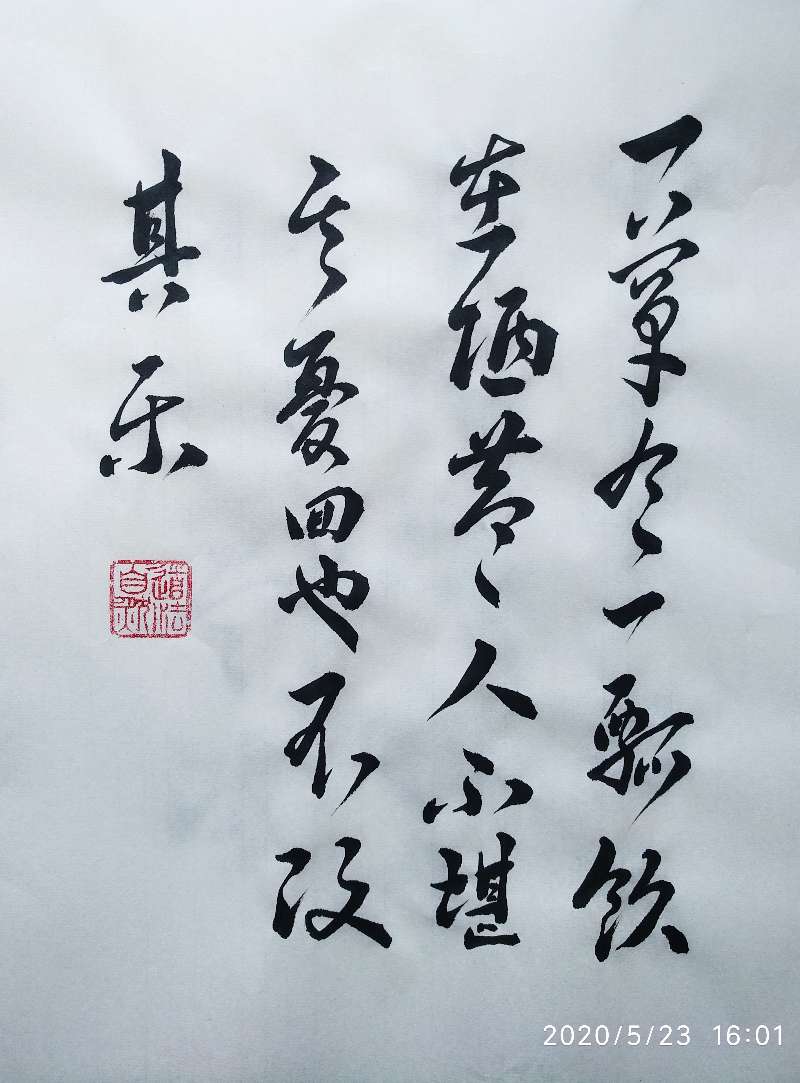 一箪食一瓢飲
在陋巷人不堪
其憂回也不改
其乐
道法自然
2020/5/23 16:01